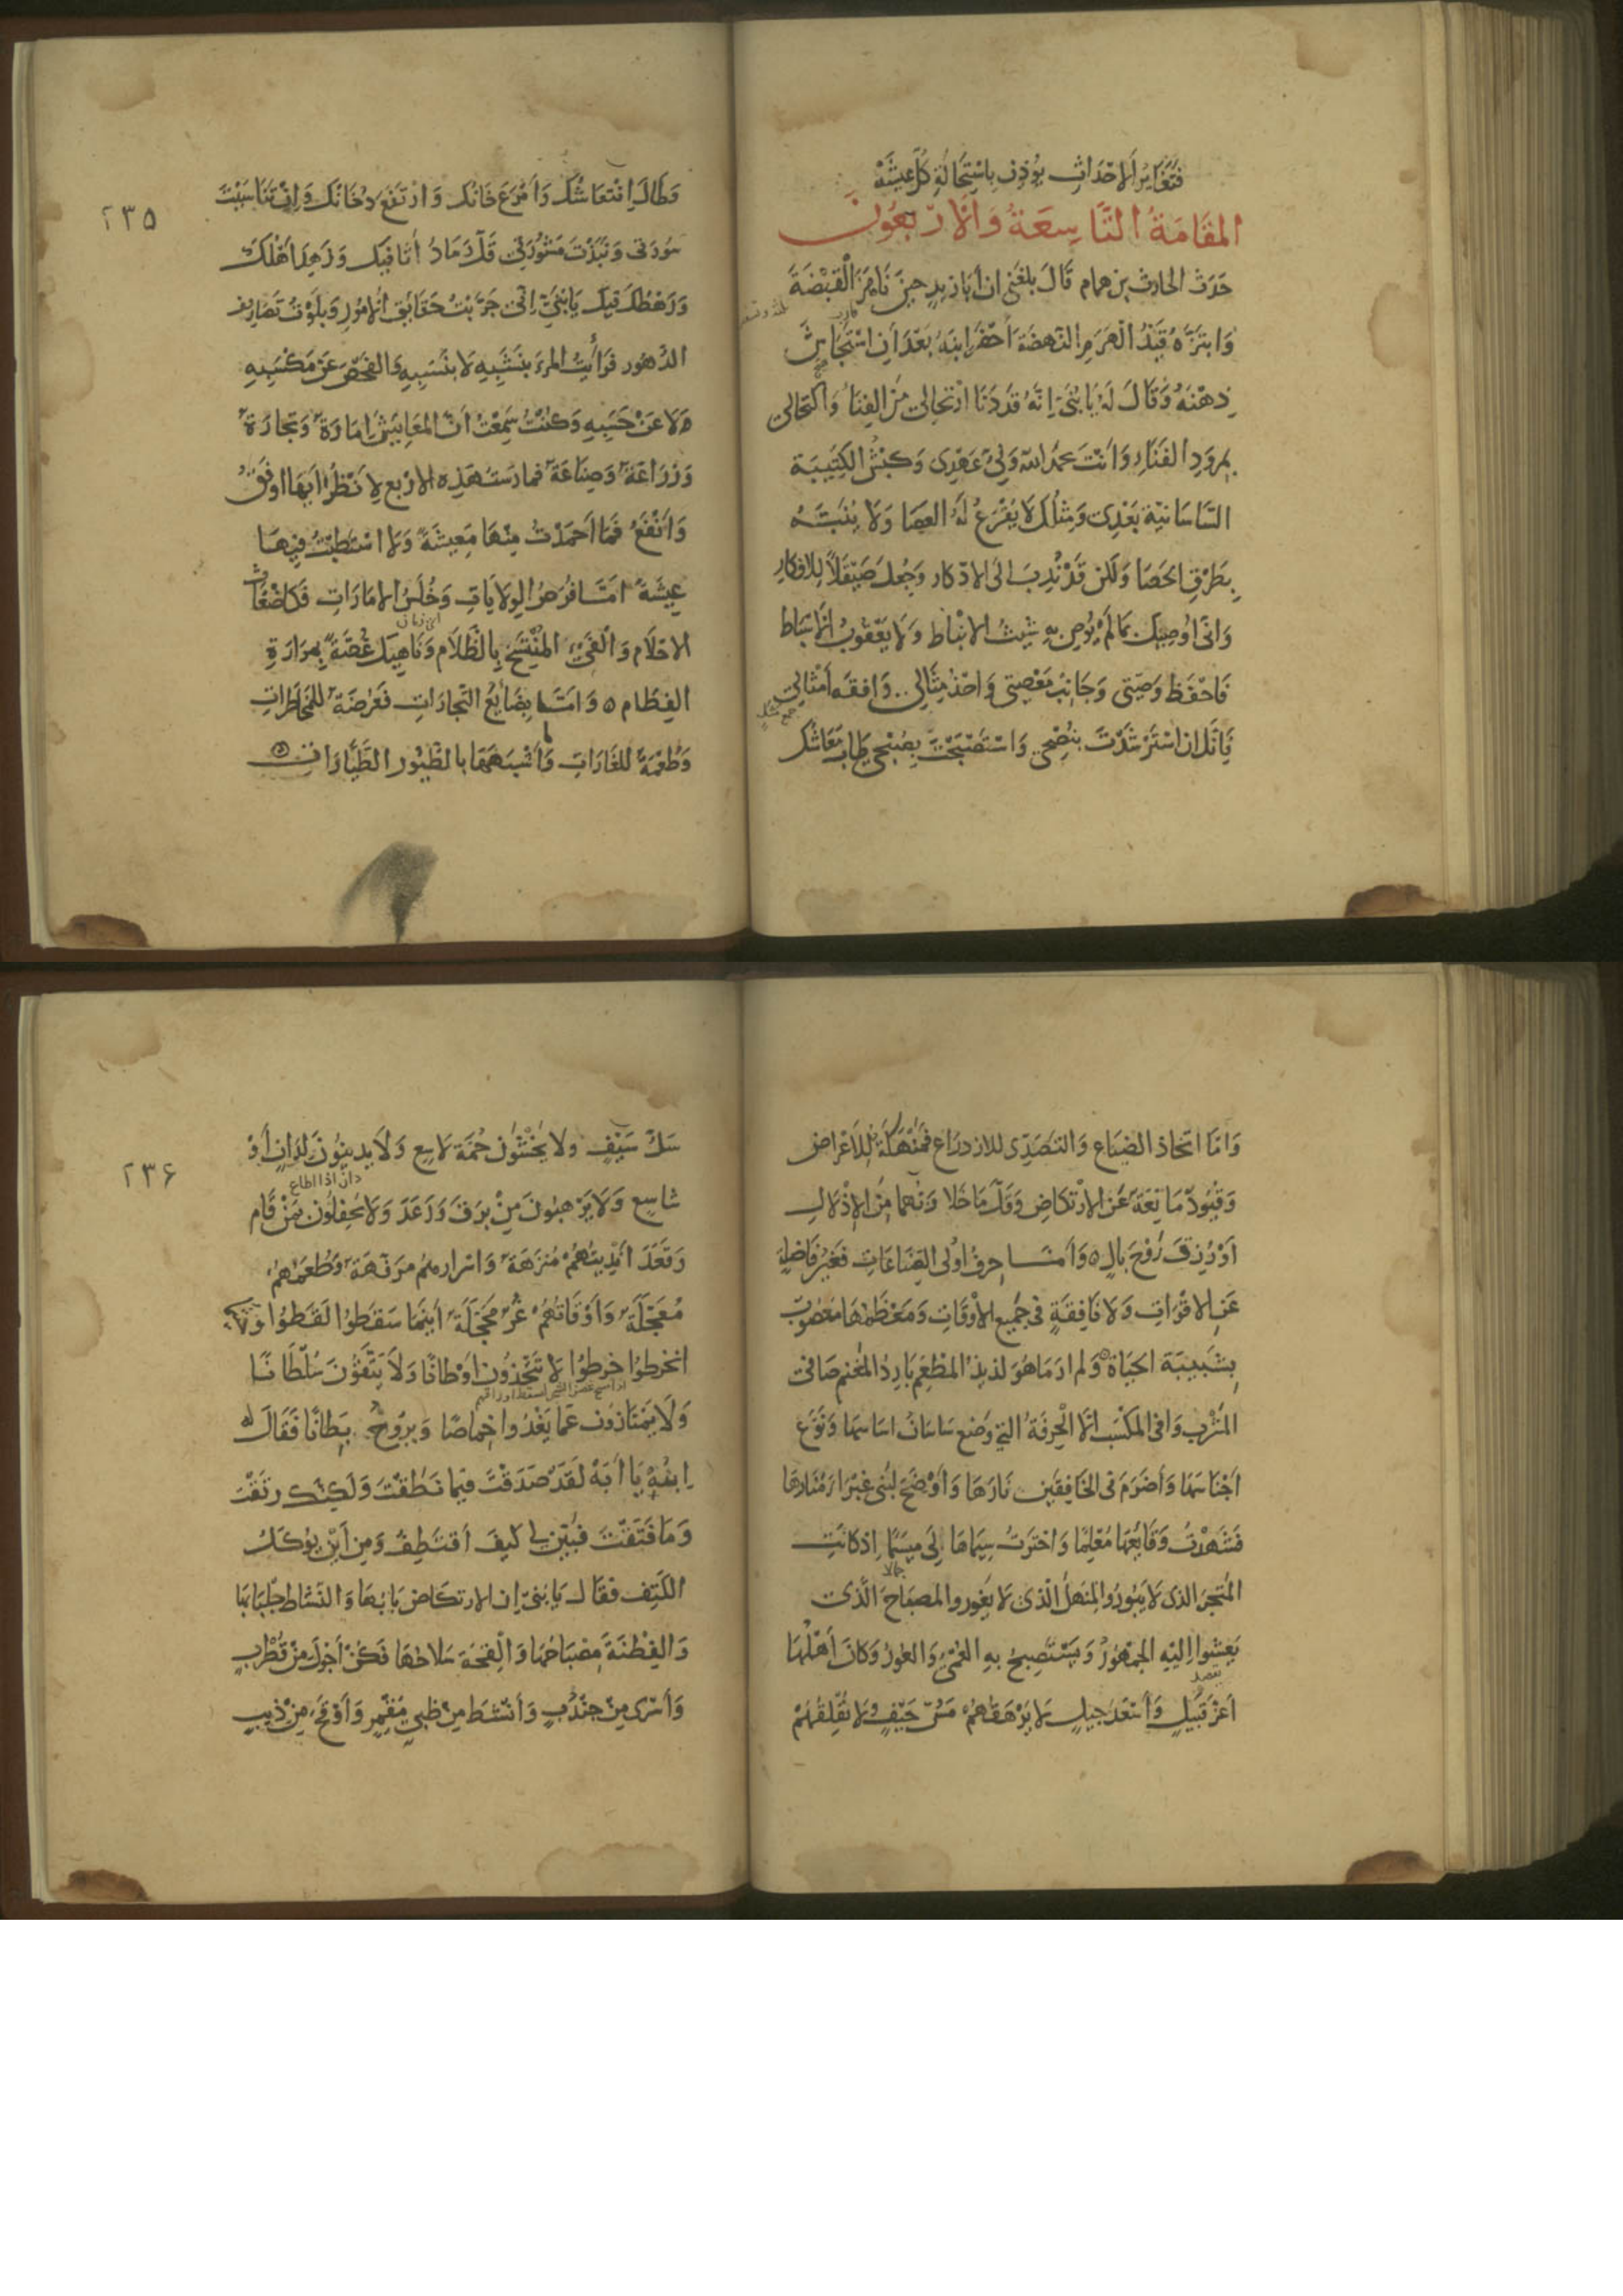 فَتَغَايُرُ الاَحْدَاثِ يُؤذِن بِاسْتِحَالَةِ كُلِّ عِيشَهْ
المَقَامَةُ التَّاسِعَةُ وَالاَرْبَعُونَ
حَدَثَ الحارث بن همام قَالَ بلغَنى ان اَبَا زيدٍ حِينَ نَاهَزَ الْقَبْضَةَ
وَابتَزَّهُ قَيْدُ الْهَرَمِ النَّهضَةَ اَحْضَرَ ابنَهُ بَعْدَ اَنِ اسْتَجَاشَ
ذِهْنَهُ وَقَالَ لَهُ يَا بُنَىَّ اِنَّهُ قَدْ دَنَا ارْتحَالِى مِنَ الفِنَاءِ وَاكْتِحَالى
بِمِرْوَدِ الفَنَاءِ وَاَنتَ بحمدِ اللهِ وَلِىُّ عَهْدِى وَكَبْشُ الكَتِيبَة
السَّاسَانيَّةِ بَعْدِى وَمِثلُكَ لَا يُقْرَعُ لَهُ العَصَا وَلَا يُنَبَّهُ
بِطَرْقِ الحَصَا وَلَكن قَدْ نُدِبَ الى الاذكار وَجُعِلَ صَيْقَلًا لِلافكارِ
وَانّى اُوصِيكَ بمَا لَمْ يُوصِ بِهِ شِيثُ الانبَاطَ وَلَا يَعْقُوبُ الاَسْبَاطَ
فَاحْفَظ وَصِيَّتى وَجَانِبْ مَعْصِيَتى وَاحْذُ مِثَالِى وَافقَه اَمْثَالِى
فَاِنَّكَ ان اسْتَرْشَدْتَ بِنُصْحِى وَاسْتَصْبَحْتَ بِصُبْحِى طَابَ مَعَاشُكَ
وَطَالَ انْتعَاشُكَ وَاَمْرَعَ خَانُكَ وَارتَفَعَ دُخَانُكَ وَاِنْ تَنَاسَيْتَ
٢٣٥
سُورَتى وَنَبَذْتَ مَشُورَتِى قَلَّ رَمَادُ اَثَافِيكَ وَزَهِدَ اَهْلُكَ
وَرَهْطُكَ فيكَ يَا بُنَىَّ اِنّى جَرَّبْتُ حَقَائِقَ الاُمُورِ وَبَلَوْتُ تَصَارِيفَ
الدُّهُور فَرَاَيْتُ المرءَ بِنَشَبِهِ لَا بِنَسَبِهِ وَالفَحْصَ عَنْ مَكْسَبِهِ
لَا عَنْ حَسَبِهِ وَكنْتُ سَمِعْتُ اَنَّ المعَايِشَ اِمَارَةٌ وَتجَارَةٌ
وَزِرَاعَةٌ وَصِنَاعَةٌ فمارَسْتُ هَذِهِ الاَرْبع لِاَنْظُرَ اَيُّهَا اوفَقُ
وَاَنْفَعُ فَمَا اَحمَدْتُ مِنْهَا مَعِيشَةً وَلَا اسْتَطَبْتُ فِيهَا
عِيشَةً امَّا فُرَصُ الوِلَايَاتِ وَخُلَسُ الاِمَارَاتِ فَكَاَضْغَاثِ
الاحْلَامِ وَالْفَىءِ المُنْتَسَخِ بِالظَّلَامِ وَنَاهِيكَ غُصَّةً بِمرَارَةِ
الفِطَامِ ٥ وَاَمَّا بَضَائِعُ التِّجَارَاتِ فَعُرْضَةٌ للمُخَاطَرَاتِ
وَطُعْمَةٌ للغَارَاتِ وَمَا اَشْبَهَهَا بالطُّيُورِ الطَّيَّارَاتِ
وَامَّا اتّخاذ الضِّيَاعِ وَالتَّصَدِّى للازدرَاعِ فمَنْهَكَةٌ لِلاَعْرَاضِ
وَقُيُودٌ مَانِعَةٌ عَنِ الارْتِكَاضِ وَقَلَّ مَا خَلَا رَبُّهَا مِنَ الاِذْلَالِ
اَوْ رُزِقَ رَوْحَ بَالٍ ٥ وَاَمَّا حِرَفُ اُولى الصِّنَاعَاتِ فَغَيْرُ فَاضِلَةٍ
عَنِ الاقْوَاتِ وَلَا نَافِقَةٍ فى جَمِيعِ الاَوْقَاتِ وَمُعْظَمُهَا مَعْصُوبٌ
بِشَبِيبَةِ الحَيَاةِ وَلم ارَ مَا هُوَ لذيذُ المَطْعَمِ بَارِدُ المَغنَمِ صَافى
المَشْرَبِ وَافى المكْسَبِ الَّا الْحِرفَةُ التى وَضَع سَاسَانُ اسَاسَهَا وَنَوَّعَ
اَجْنَاسَهَا وَاَضْرَمَ فى الخَافِقَيْنِ نَارَهَا وَاَوْضَحَ لبنى غَبْرَاءَ مَنَارَهَا
فَشَهِدْتُ وَقَايعَهَا مُعْلِمًا وَاخترَتُ سِيمَاهَا لِى مِيسَمًا اِذ كَانَتِ
المَتجَرَ الذى لا يَبُورُ والمنهَلَ الَّذى لَا يَغُور والمصبَاحَ الَّذى
يَعشُوا اِلَيْهِ الجمْهُورُ وَيَسْتَصْبِحُ بِهِ العُمْىُ وَالعُورُ وَكَانَ اَهْلُهَا
اَعَزَّ قَبِيلٍ وَاَسْعَدَ جِيلٍ لَا يَرْهَقُهُمْ مَسُّ حَيْفٍ وَلَا يُقْلِقُهُمْ
سَلُّ سَيْفٍ وَلا يَخْشَوْنَ حُمَةَ لَاسِعٍ وَلَا يَدينُونَ لِدَانٍ اَوْ
دان اذا اطاع
٢٣۶
شَاسِعٍ وَلَا يَرْهَبُونَ مِنْ بَرَقَ وَرَعَدَ وَلَا يَحْفِلُونَ بِمَنْ قَام
وَقَعَدَ اَنْدِيَتُهُمْ مُنَزَّهَةٌ وَاسرَارُهُمْ مرَفّهَةٌ وَطُعَمُهُمْ
مُعَجَّلَةٌ وَاَوْقَاتُهُمْ غُرٌّ مُحَجَّلَةٌ اَيْنَمَا سَقَطُوا لَقَطُوا
انخَرَطُوا خرطُوا لَا يَتَّخِذُونَ اَوْطَانًا وَلَا يَتَّقُونَ سُلْطَانًا
وَلَا يَمْتَازُونَ عَمَّا يَغْدُوا خِمَاصًا وَيَرُوحُ بِطَانًا فَقَالَ لهُ
ابنُهُ يَا اَبَهْ لَقَدْ صَدَقْتَ فِيمَا نَطَقْتَ وَلَكِنَّكَ رَتَقْتَ
وَمَا فَتَقْتَ فَبَيِّنْ لِى كَيفَ اَقتَطِفُ وَمِن اَيْنَ يُؤكَلُ
الكَتِف فقَالَ يَا بُنَىَّ اِنَ الارتكَاضَ بَابُهَا وَالنّشَاطَ جِلْبَابُهَا
وَالفِطْنَةَ مِصْبَاحُهَا وَالْقِحَةَ سِلَاحُهَا فَكُنْ اَجْوَلَ مِنْ قُطْرُبٍ
وَاَسْرَى مِنْ جُنْدُبٍ وَاَنْشَطَ مِنْ ظَبىٍ مُقْمِرٍ وَاَوْقَحَ مِنْ ذِيبٍ